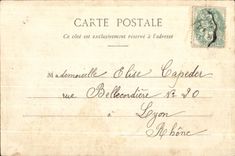 CARTE POSTALE
Ce côté est exclusivement réservé à l'adresse
Mademoiselle Elise Capeder
rue Bellecordière No 20
à Lyon
Rhône